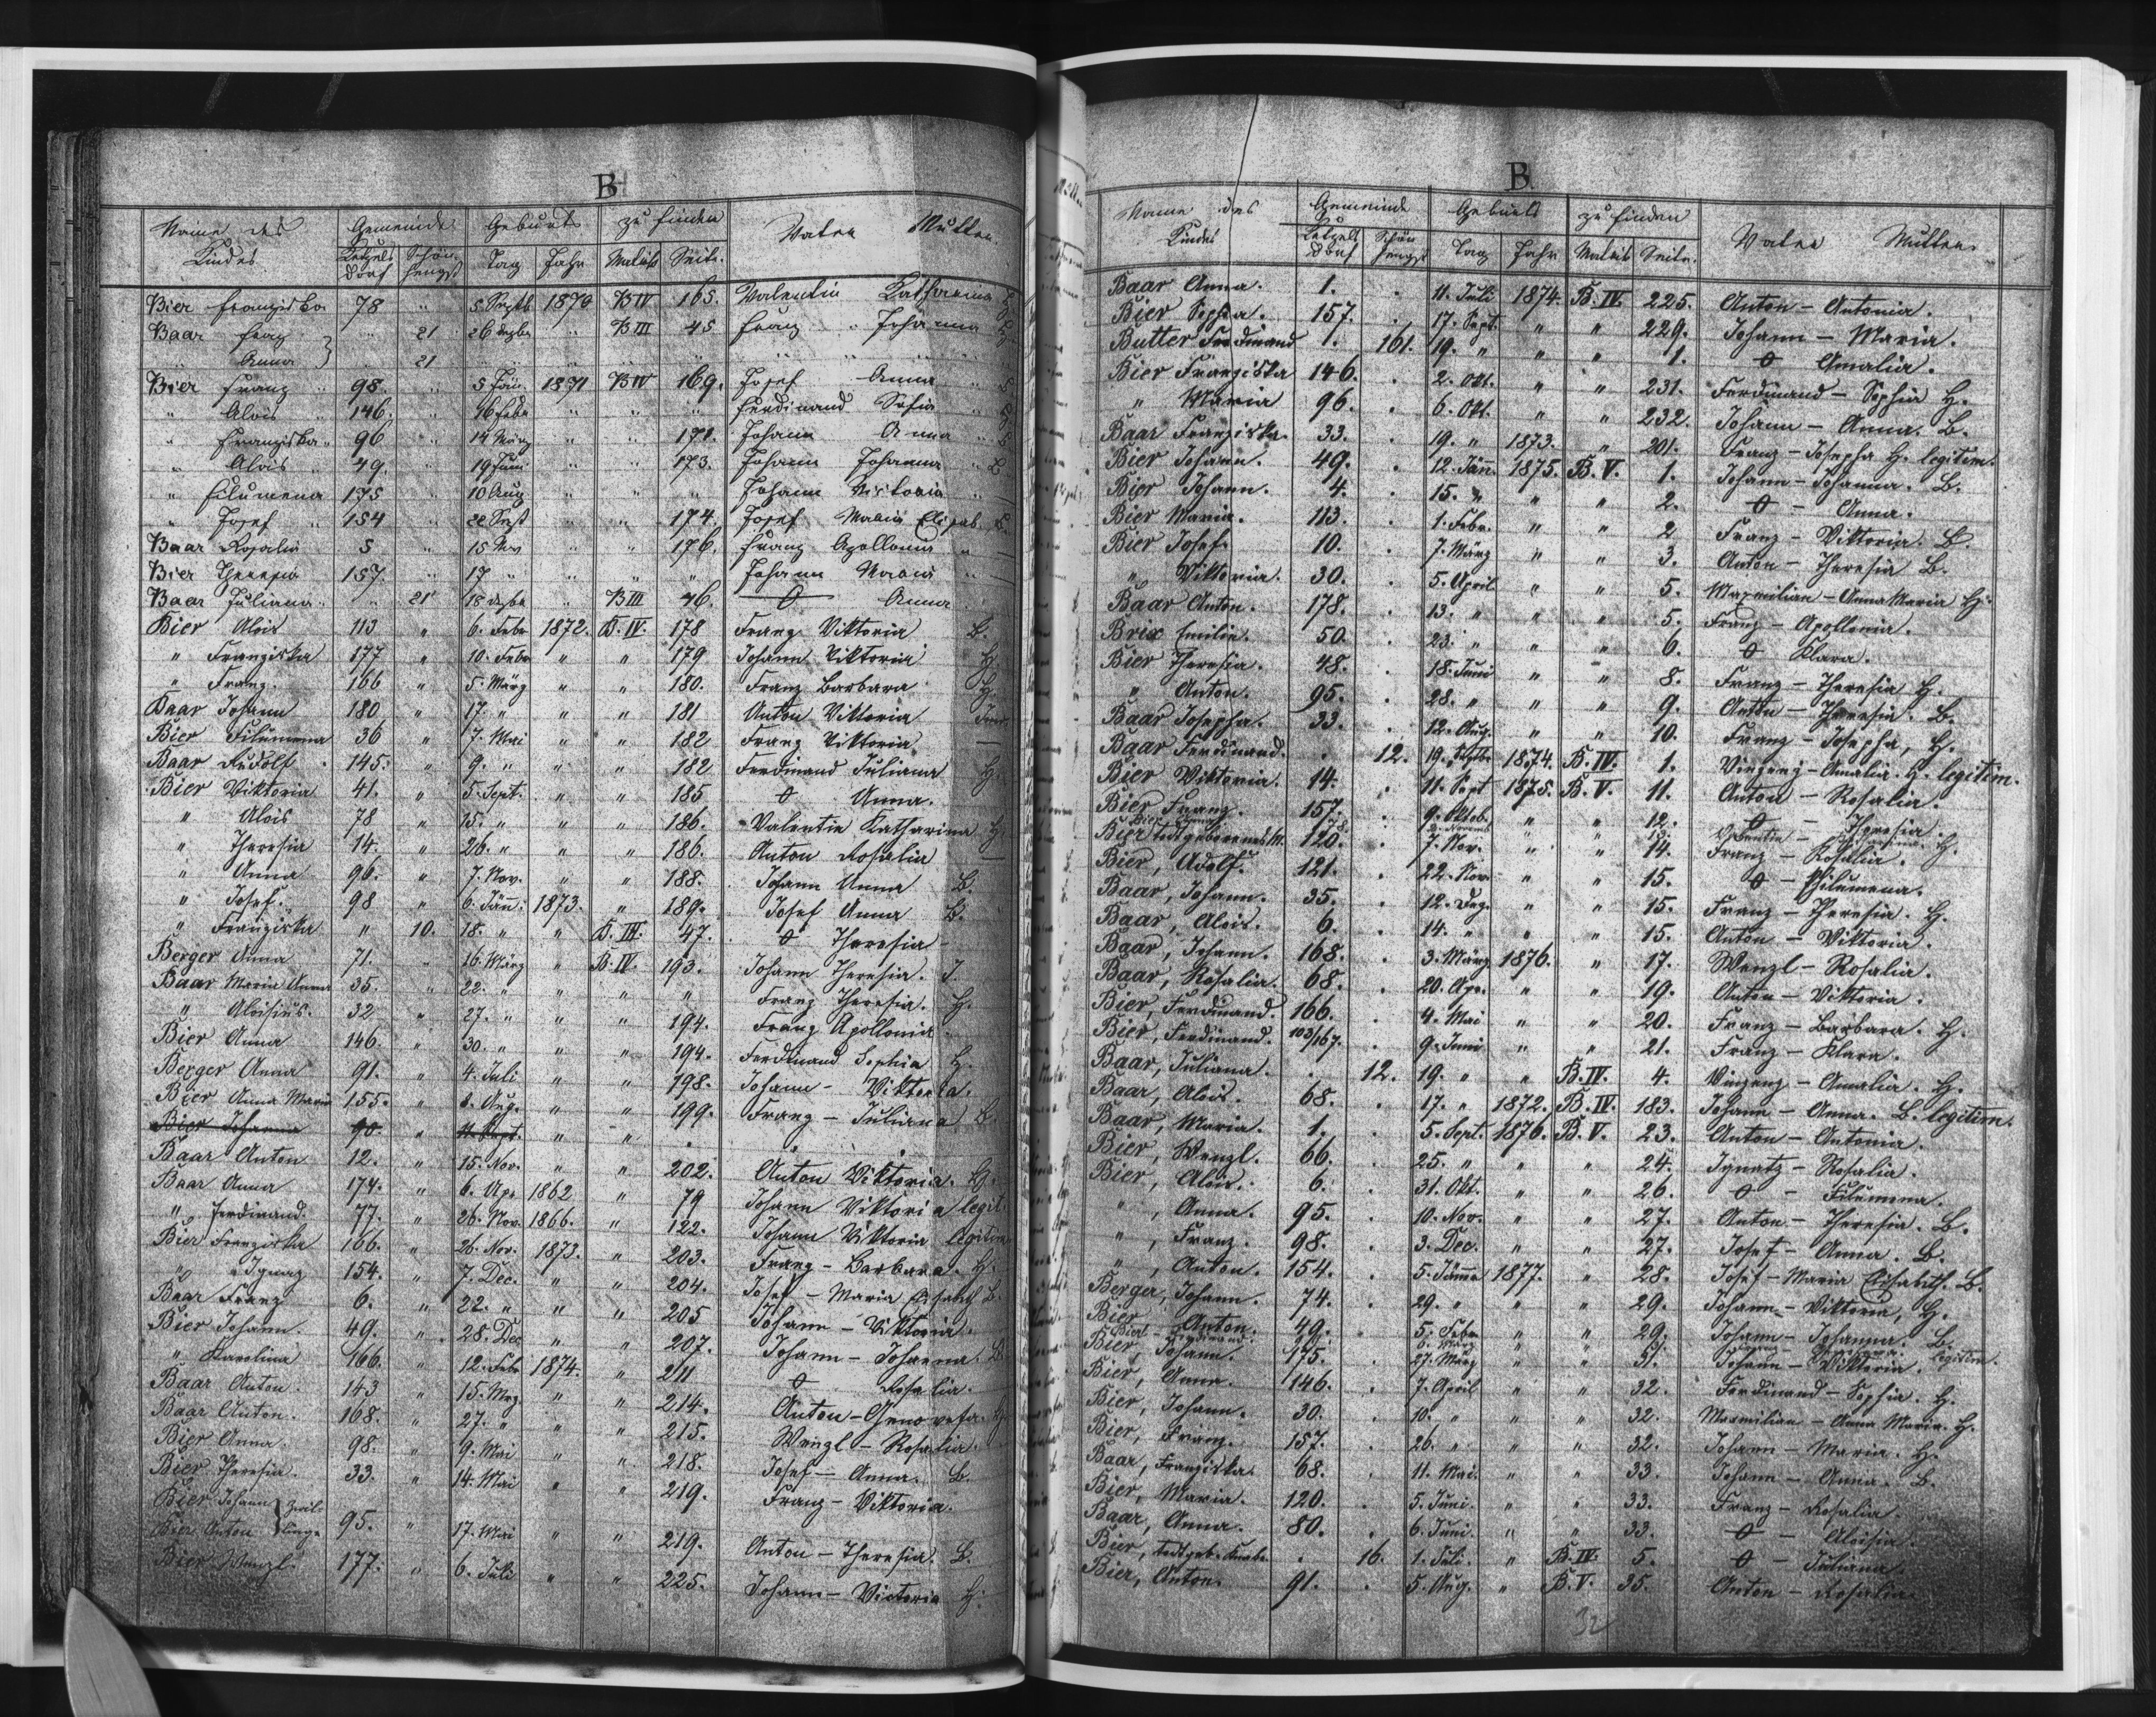 B
Name des Kindes Gemeinde Geburts zu finden Vater Mutter
Ketzelsdorf Schönhengst Tag Jahr Matrik Seite
Bier Franziska 78 " 5 Septb 1870 B IV 165. Valentin Katharina
Baar Franz " 21 26 dezbr " B III 45 Franz " Johanna
" Anna } " 21 " " " " " "
Bier Franz " 98 " 5 Jän. 1871 B IV 169. Josef Anna "
" Alois " 146. " 16 Febr " " " Ferdinand Sofia "
" Franziska " 96 " 14 März " " 171. Johann Anna "
" Alois " 49. " 19 Juni " " 173. Johann Johanna " B
" Filumena 175 " 10 Aug " " " Johann Viktoria "
" Josef " 154 " 22 Sept " " 174. Josef Maria Elisab. B
Baar Rosalia 5 " 15 Nov " " 176. Franz Apollonia "
Bier Theresia 157. " 17 " " " " Johann Maria "
Baar Juliana " " 21 18 dezbr " B III 46. O Anna
Bier Alois 113 " 6. Febr 1872. B. IV. 178 Franz Viktoria B.
" Franziska 177 " 10. Febr " " 179 Johann Viktoria H.
" Franz. 166 " 5. März " " 180. Franz Barbara H.
Baar Johann 180 " 17. " " " 181 Anton Viktoria
Bier Filumena 36 " 7. Mai " " 182 Franz Viktoria —
Baar Rudolf 145. " 9. " " " 182 Ferdinand Juliana H.
Bier Viktoria 41. " 5. Sept. " " 185 O Anna.
" Alois 78 " 15. " " " 186. Valentin Katharina H.
" Theresia 14. " 26. " " " 186. Anton Rosalia —
" Anna 96. " 7. Nov. " " 188. Johann Anna B.
" Josef. 98 " 6. Jän. 1873. " 189. Josef Anna B.
" Franziska " 10. 18. " " B. III. 47. O Theresia -
Berger Anna 71. " 16. März " B. IV. 193. Johann Theresia. J.
Baar Maria Anna 35. " 22. " " " " Franz Theresia. H.
" Aloisius. 32 " 27. " " " 194. Franz Apollonia -
Bier Anna 146. " 30. " " " 194. Ferdinand Sophia H.
Berger Anna 91. " 4. Juli " " 198. Johann - Viktoria.
Bier Anna Maria 155. " 8. Aug. " " 199. Franz - Juliana B.
Bier Johanna 90. " 11. Sept. " "
Baar Anton 12. " 15. Nov. " " 202. Anton Viktoria. H.
Baar Anna 174. " 6. Apr 1862 " 79 Johann Viktoria legit.
" Ferdinand. 77. " 26. Nov. 1866. " 122. Johann Viktoria legitim
Bier Franziska 166. " 26. Nov. 1873. " 203. Franz - Barbara. H.
" Ignaz 154. " 7. Dec. " " 204. Josef - Maria Elisabeth B.
Baar Franz 6. " 22. " " " 205 Johann - Viktoria.
Bier Johann. 49. " 28. Dec " " 207. Johann - Johanna. B.
" Karolina 166. " 12. Febr 1874. " 211 O Rosalia.
Baar Anton. 143 " 15. Mrz " " 214. Anton - Genovefa. H.
Baar Anton. 168. " 27. " " " 215. Wenzl - Rosalia.
Bier Anna. 98. " 9. Mai " " 218. Josef - Anna. B.
Bier Theresia. 33. " 14. Mai " " 219. Franz - Viktoria.
Bier Johann } Zwil-
Bier Anton } linge 95. " 17. Mai " " 219. Anton - Theresia. B.
Bier Wenzl. 177. " 6. Juli " " 225. Johann - Victoria H.
B.
Name des Kindes Gemeinde Geburts zu finden Vater Mutter
Ketzelsdorf Schönhengst Tag Jahr Matrik Seite.
Baar Anna. 1. . 11. Juli 1874. B. IV. 225. Anton - Antonia.
Bier Sophia. 157. . 17. Sept. " " 229. Johann - Maria.
Butter Ferdinand 1. 161. 19. " " " 1. O Amalia.
Bier Franziska 146. . 2. Okt. " " 231. Ferdinand - Sophia H.
" Maria 96. . 6. Okt. " " 232. Johann - Anna. B.
Baar Franziska. 33. . 19. " 1873. " 201. Franz - Josepha H. legitim.
Bier Johann. 49. . 12. Jänn. 1875. B. V. 1. Johann - Johanna. B.
Bier Johann. 4. . 15. " " " 2. O - Anna.
Bier Maria. 113. . 1. Febr. " " 2. Franz - Viktoria. B.
Bier Josef. 10. . 7. März " " 3. Anton - Theresia B.
" Viktoria. 30. . 5. April " " 5. Maxmilian - Anna Maria H.
Baar Anton. 178. . 13. " " " 5. Franz - Apollonia.
Brix Emilie. 50. . 23. " " " 6. O Klara.
Bier Theresia. 48. . 18. Juni " " 8. Franz - Theresia H.
" Anton. 95. . 28. " " " 9. Anton - Theresia. B.
Baar Josepha. 33. . 12. Aug. " " 10. Franz - Josepha, H.
Baar Ferdinand. . 12. 19. Septb. 1874. B. IV. 1. Vinzenz - Amalia. H. legitim.
Bier Viktoria. 14. . 11. Sept 1875. B. V. 11. Anton - Rosalia.
Bier Franz. 157. . 9. Oktob. " " 12. O - Theresia.
Bier todtgeborenes M. 120. . 7. Nov. " " 14. Franz - Rosalia.
Bier, Adolf. 121. . 22. Nov. " " 15. O - Philumena.
Baar, Johann. 35. . 12. Dez. " " 15. Franz - Theresia. H.
Baar, Alois. 6. . 14. " " " 15. Anton - Viktoria.
Baar, Johann. 168. . 3. März 1876. " 17. Wenzl - Rosalia.
Baar, Rosalia. 68. . 20. Apr. " " 19. Anton - Viktoria.
Bier, Ferdinand. 166. . 4. Mai " " 20. Franz - Barbara. H.
Bier, Ferdinand. 103/167. . 9. Juni " " 21. Franz - Klara.
Baar, Juliana. . 12. 19. " " B. IV. 4. Vinzenz - Amalia. H.
Baar, Alois. 68. . 17. " 1872. B. IV. 183. Johann - Anna. B. legitim.
Baar, Maria. 1. . 5. Sept. 1876. B. V. 23. Anton - Antonia.
Bier, Wenzl. 66. . 25. " " " 24. Ignatz - Rosalia.
Bier, Alois. 6. . 31. Okt. " " 26. O - Filumena.
" , Anna. 95. . 10. Nov. " " 27. Anton - Theresia. B.
" , Franz. 98. . 3. Dec. " " 27. Josef - Anna. B.
" , Anton. 154. . 5. Jänner 1877. " 28. Josef - Maria Elisabeth. B.
Berger, Johann. 74. . 29. " " " 29. Johann - Viktoria, H.
Bier Anton. 49. . 5. Febr. " " 29. Johann - Johanna. B.
Bier, Johann. 175. . 27. März " " 31. Johann - Viktoria. legitim.
Bier, Anna. 146. . 7. April " " 32. Ferdinand - Sophia. H.
Bier, Johann. 30. . 10. " " " 32. Maxmilian - Anna Maria. H.
Bier, Franz. 157. . 26. " " " 32. Johann - Maria. H.
Baar, Franziska. 68. . 11. Mai. " " 33. Johann - Anna. B.
Bier, Maria. 120. . 5. Juni. " " 33. Franz - Rosalia.
Baar, Anna. 80. . 6. Juni. " " 33. O - Aloisia.
Bier, todtgeb. Knabe. . 16. 1. Juli. " B. IV. 5. O - Juliana.
Bier, Anton. 91. . 5. Aug. " B. V. 35. Anton - Rosalia.
32